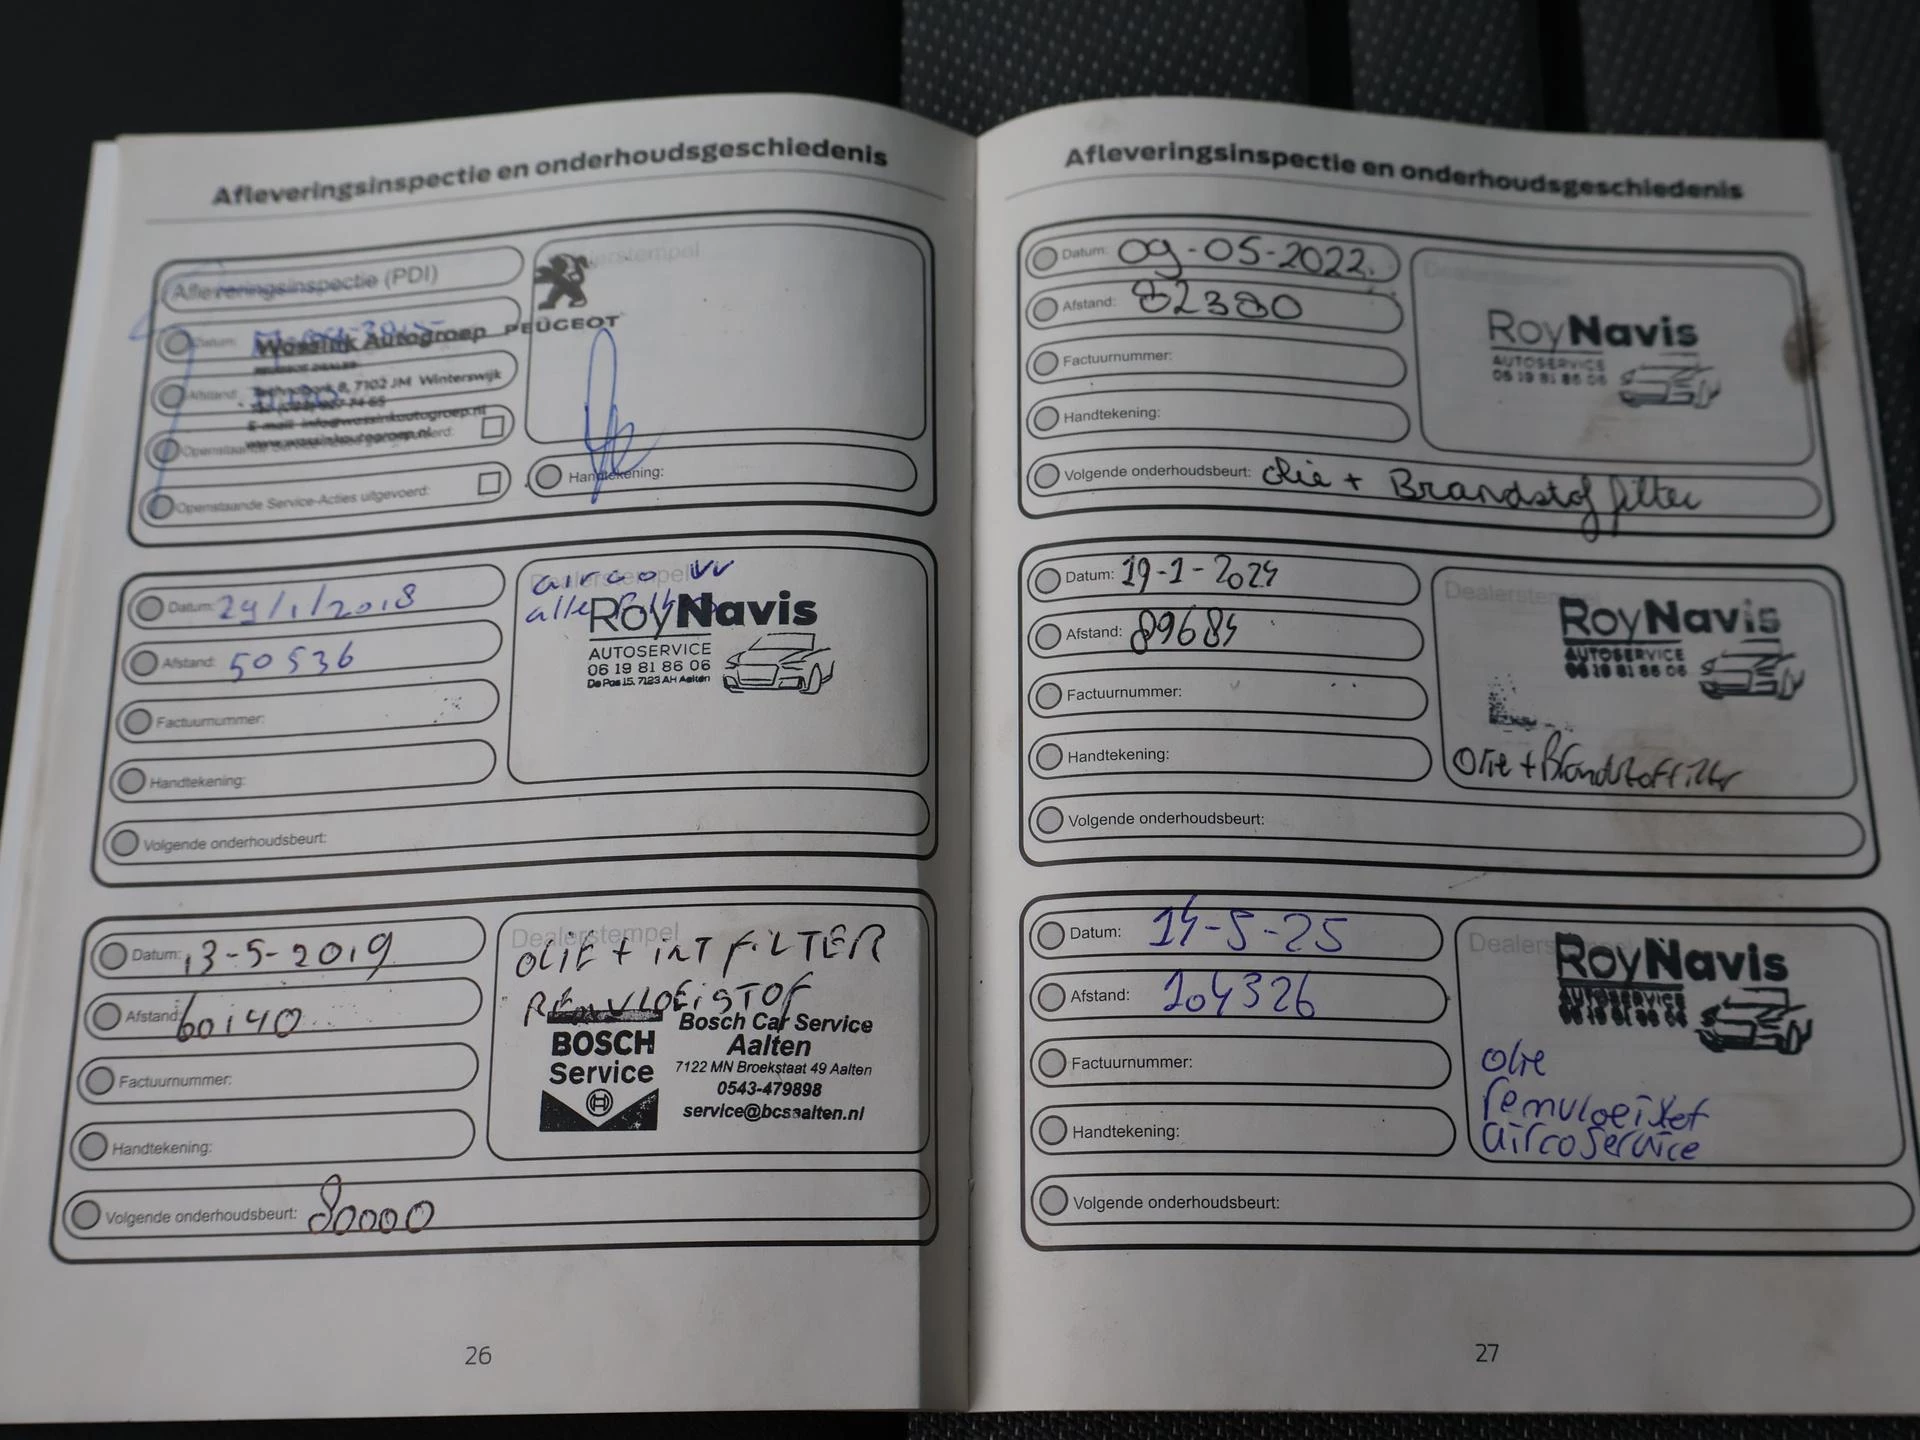 Afleveringsinspectie en onderhoudsgeschiedenis
Afleveringsinspectie (PDI)
Datum:
Wossink Autogroep
PEUGEOT DEALER
Afstand:
8, 7102 JM Winterswijk
E-mail: info@wossinkautogroep.nl
www.wossinkautogroep.nl
Openstaande Service-Acties uitgevoerd:
Dealerstempel
PEUGEOT
Handtekening:
Datum: 29/1/2018
Afstand: 50536
Factuurnummer:
Handtekening:
Volgende onderhoudsbeurt:
Dealerstempel
airco vv
alle
RoyNavis
AUTOSERVICE
06 19 81 86 06
De Pas 15, 7123 AH Aalten
Datum: 13-5-2019
Afstand: 60140
Factuurnummer:
Handtekening:
Volgende onderhoudsbeurt: 80000
Dealerstempel
OLIE + INT FILTER
REMVLOEISTOF
BOSCH
Service
Bosch Car Service
Aalten
7122 MN Broekstaat 49 Aalten
0543-479898
service@bcsaalten.nl
26
Afleveringsinspectie en onderhoudsgeschiedenis
Datum: 09-05-2022.
Afstand: 82380
Factuurnummer:
Handtekening:
Volgende onderhoudsbeurt: olie + Brandstof filter
Dealerstempel
RoyNavis
AUTOSERVICE
06 19 81 86 06
Datum: 19-1-2024
Afstand: 89684
Factuurnummer:
Handtekening:
Volgende onderhoudsbeurt:
Dealerstempel
RoyNavis
AUTOSERVICE
06 19 81 86 06
Olie + Brandstoffilter
Datum: 14-5-25
Afstand: 104326
Factuurnummer:
Handtekening:
Volgende onderhoudsbeurt:
Dealerstempel
RoyNavis
AUTOSERVICE
06 19 81 86 06
olie
remvloeistof
aircoservice
27